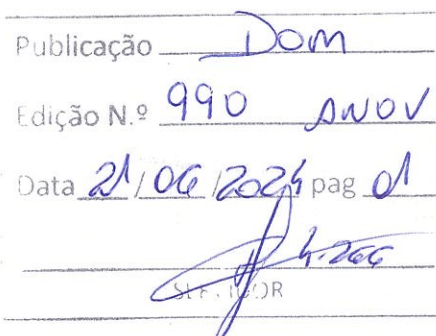 Publicação DOM
Edição N.º 990 ANO V
Data 21/06/2024 pag 01
4.266
SERVIDOR